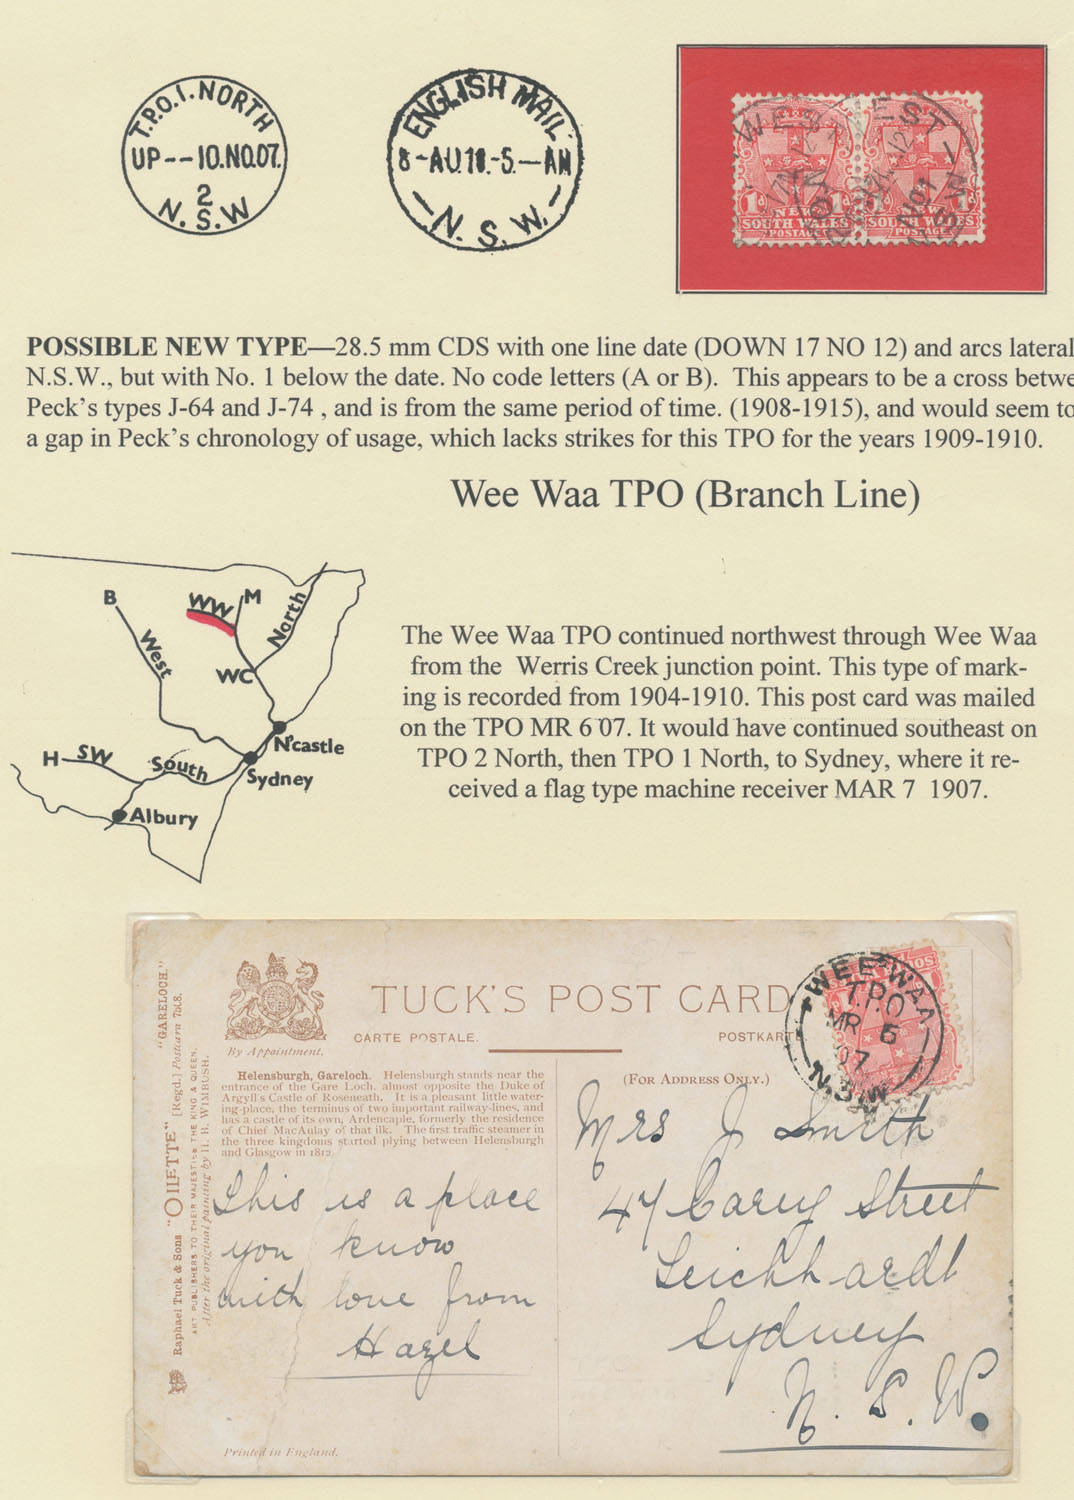 T.P.O.1. NORTH
UP--10.NO.07.
2
N.S.W
ENGLISH MAIL
8-AU.18-5.-AM
-N.S.W.-
WEST
1d 1d
NEW
SOUTH WALES
POSTAGE
WEST
1d
NEW
SOUTH WALES
POSTAGE
POSSIBLE NEW TYPE—28.5 mm CDS with one line date (DOWN 17 NO 12) and arcs lateral
N.S.W., but with No. 1 below the date. No code letters (A or B). This appears to be a cross betwe
Peck's types J-64 and J-74 , and is from the same period of time. (1908-1915), and would seem to
a gap in Peck's chronology of usage, which lacks strikes for this TPO for the years 1909-1910.
Wee Waa TPO (Branch Line)
B
WW
M
North
West
WC
N'castle
H
SW
South
Sydney
Albury
The Wee Waa TPO continued northwest through Wee Waa
from the Werris Creek junction point. This type of mark-
ing is recorded from 1904-1910. This post card was mailed
on the TPO MR 6 07. It would have continued southeast on
TPO 2 North, then TPO 1 North, to Sydney, where it re-
ceived a flag type machine receiver MAR 7 1907.
TUCK'S POST CARD
CARTE POSTALE.
POSTKARTE
By Appointment.
WEE WAA
T.P.O
MR 6
07
N.S.W
Helensburgh, Gareloch. Helensburgh stands near the
entrance of the Gare Loch, almost opposite the Duke of
Argyll's Castle of Roseneath. It is a pleasant little water-
ing-place, the terminus of two important railway-lines, and
has a castle of its own, Ardencaple, formerly the residence
of Chief MacAulay of that ilk. The first traffic steamer in
the three kingdoms started plying between Helensburgh
and Glasgow in 1812.
(FOR ADDRESS ONLY.)
This is a place
you know
with love from
Hazel
Mrs J Smith
47 Carey Street
Leichhardt
Sydney
N. S. W.
Raphael Tuck & Sons "OILETTE" [Regd.] Postcard 7018.
"GARELOCH."
ART PUBLISHERS TO THEIR MAJESTIES THE KING & QUEEN.
After the original painting by H. B. WIMBUSH.
Printed in England.